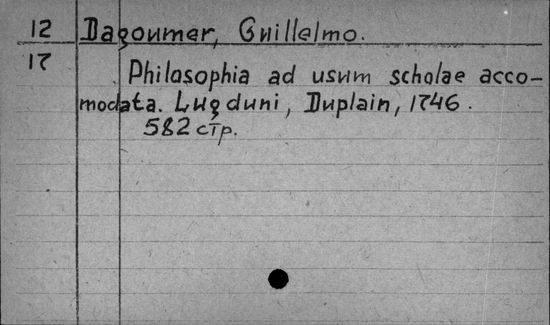 12 Dagoumer, Guillelmo.
17 Philosophia ad usum scholae acco-
modata. Lugduni, Duplain, 1746.
582 стр.